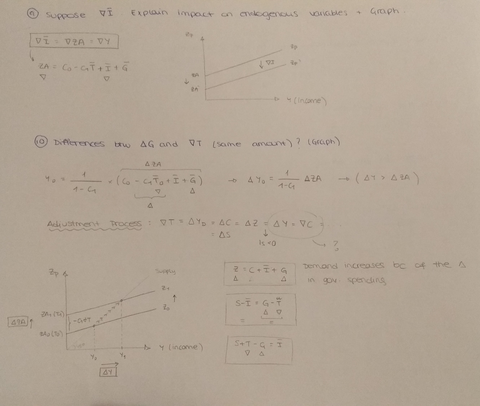 9) Suppose ∇Ī Explain impact on endogenous variables + Graph.
∇Ī = ∇ZA = ∇Y
ZA = C0 - C1T̄ + Ī + Ḡ
∇ ∇
Zp
Zp
↓∇Ī
Zp'
ZA
ZA'
Y (income)
10) Differences btw ΔG and ∇T (same amount)? (Graph)
ΔZA
Y0 = 1/(1-C1) = (C0 - C1T̄0 + Ī + Ḡ) → ΔY0 = 1/(1-C1) ΔZA → (ΔY = ΔZA)
∇ Δ
Δ
Adjustment Process: ∇T = ΔYD = ΔC = ΔZ = ΔY = ∇C =
ΔS
?
Zp
Supply
Z1
Z0
ΔZA
Y0
Y1
Y (income)
ΔY
Z = C + Ī + G
Δ Δ
Demand increases bc of the Δ
in gov. spending
S - Ī = G - T̄
Δ ∇
S + T - G = Ī
∇ Δ